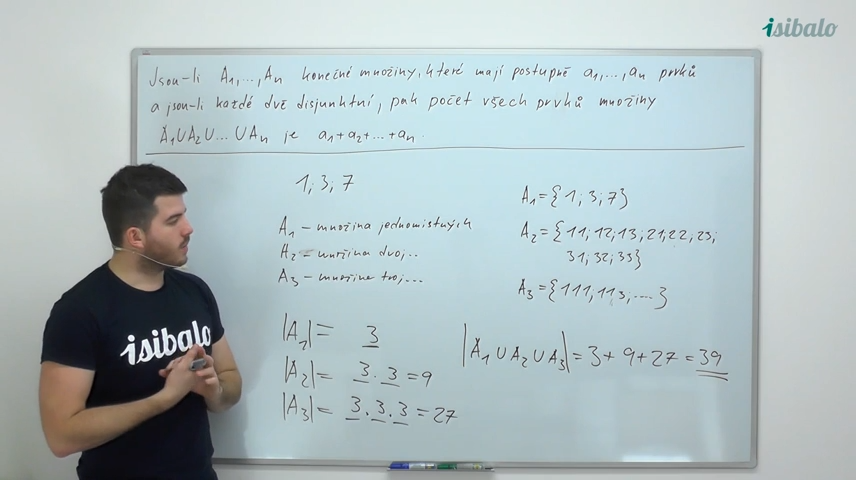 isibalo
Jsou-li A₁,...,Aₙ konečné množiny, které mají postupně a₁,...,aₙ prvků
a jsou-li každé dvě disjunktní, pak počet všech prvků množiny
A₁∪A₂∪...∪Aₙ je a₁+a₂+...+aₙ.
1; 3; 7
A₁ – množina jednomístných
A₂ – množina dvoj..
A₃ – množina troj...
|A₁| = 3
|A₂| = 3 . 3 = 9
|A₃| = 3 . 3 . 3 = 27
A₁={1; 3; 7}
A₂={11; 12; 13; 21; 22; 23;
31; 32; 33}
A₃={111; 113; ....}
|A₁ ∪ A₂ ∪ A₃| = 3 + 9 + 27 = 39
isibalo